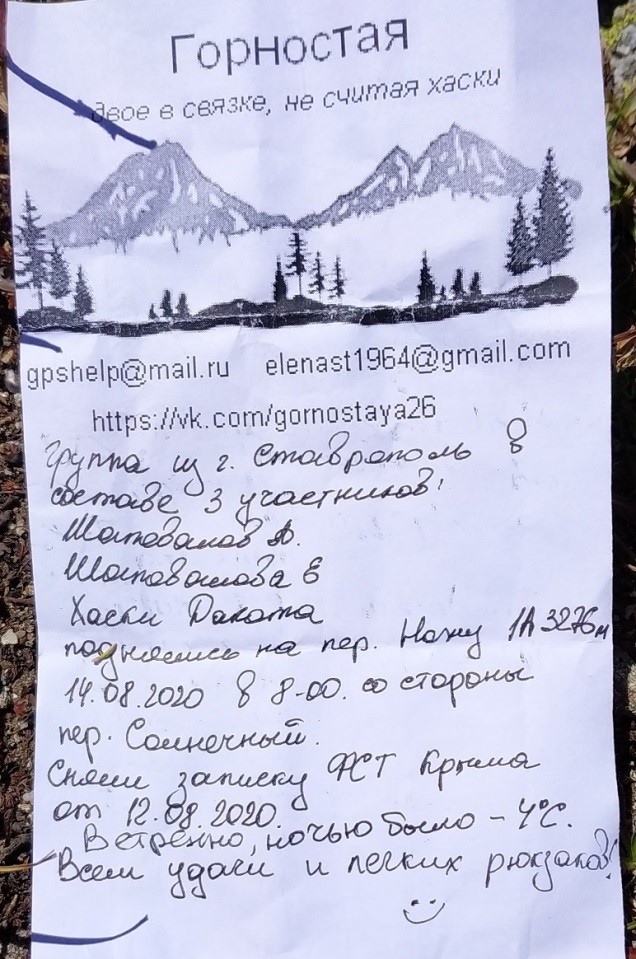 Горностая
двое в связке, не считая хаски
gpshelp@mail.ru elenast1964@gmail.com
https://vk.com/gornostaya26
Группа из г. Ставрополь в
составе 3 участников:
Шаповалов А.
Шаповалова Е
Хаски Дакота
поднялись на пер. Нажу 1А 3276м
14.08.2020 в 8-00. со стороны
пер. Солнечный.
Сняли записку ФСТ Крыма
от 12.08.2020.
Ветренно, ночью было -4°C.
Всем удачи и легких рюкзаков!